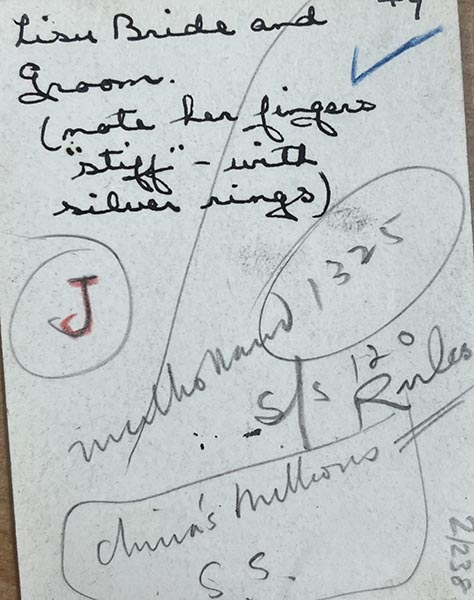 Lisu Bride and
Groom.
(note her fingers
"stiff" - with
silver rings)
J
mulholland 1325
S/s 120
Rules
China's Millions
S.S.
2/238